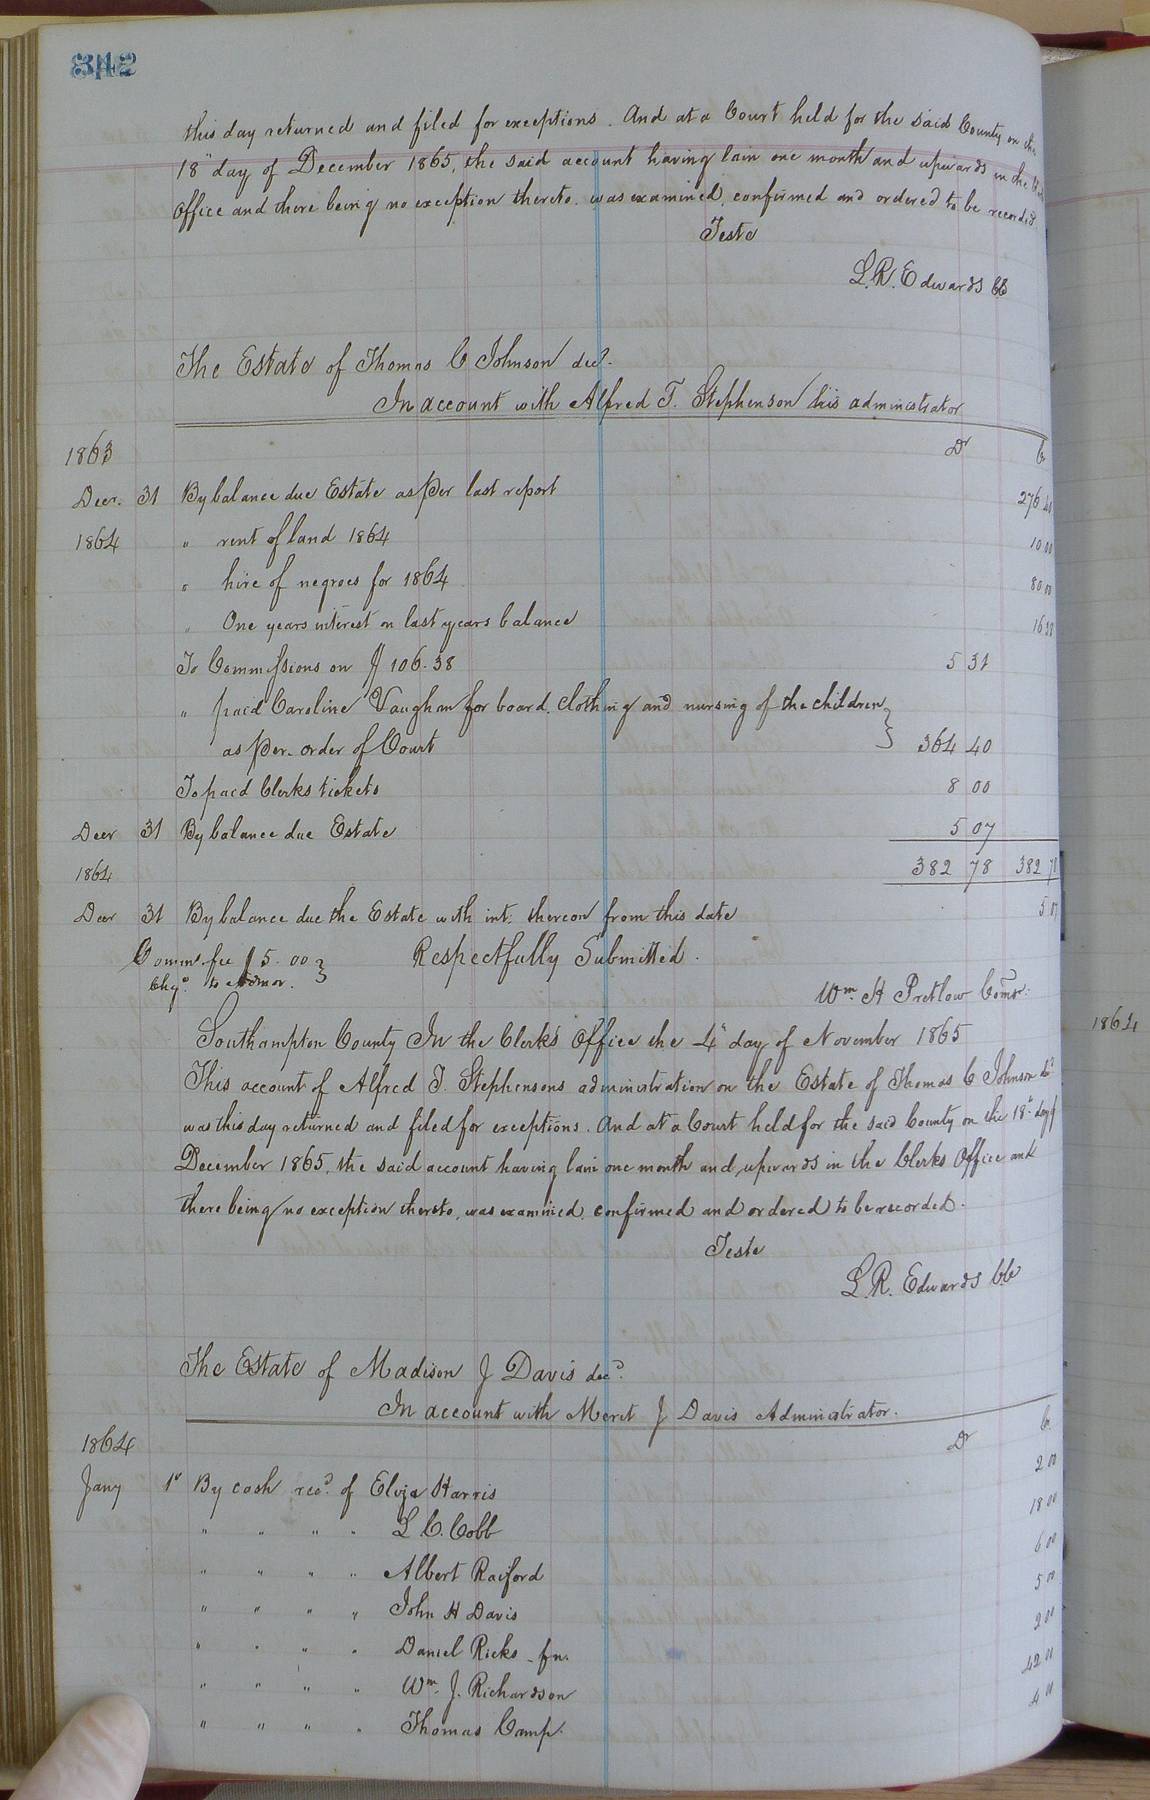 342
this day returned and filed for exceptions. And at a Court held for the said County on the
18" day of December 1865, the said account having lain one month and upwards in the
Office and there being no exception thereto, was examined, confirmed and ordered to be recorded.
Teste
L. R. Edwards CC
The Estate of Thomas C Johnson decd.
In account with Alfred T. Stephenson his administrator
1863 Dr Cr
Decr. 31 By balance due Estate as per last report 276 40
1864 " rent of land 1864 10 00
" hire of negroes for 1864 80 00
" One years interest on last years balance 16 38
To Commissions on $106.38 5 31
" paid Caroline Vaughan for board, clothing and nursing of the children }
as per order of Court 364 40
To paid Clerks tickets 8 00
Decr 31 By balance due Estate 5 07
1864 382 78 382 78
Decr 31 By balance due the Estate with int. thereon from this date 5 07
Comm. fee $5.00 } Respectfully Submitted.
Chgd. to Admor.
Wm. H Pretlow Comr.
Southampton County In the Clerk's Office the 4" day of November 1865
This account of Alfred T. Stephensons administration on the Estate of Thomas C Johnson decd
was this day returned and filed for exceptions. And at a Court held for the said County on the 18" day of
December 1865, the said account having lain one month and upwards in the Clerks Office and
there being no exception thereto, was examined, confirmed and ordered to be recorded.
Teste
L. R. Edwards CC
The Estate of Madison J Davis decd.
In account with Meret J Davis Administrator.
1864 Dr Cr
Jany 1" By cash recd. of Eliza Harris 2 00
" " " " L C. Cobb 18 00
" " " " Albert Raiford 6 00
" " " " John H Davis 5 00
" " " " Daniel Ricks fn. 2 00
" " " " Wm. J. Richardson 42 00
" " " " Thomas Camp. 4 00
1864